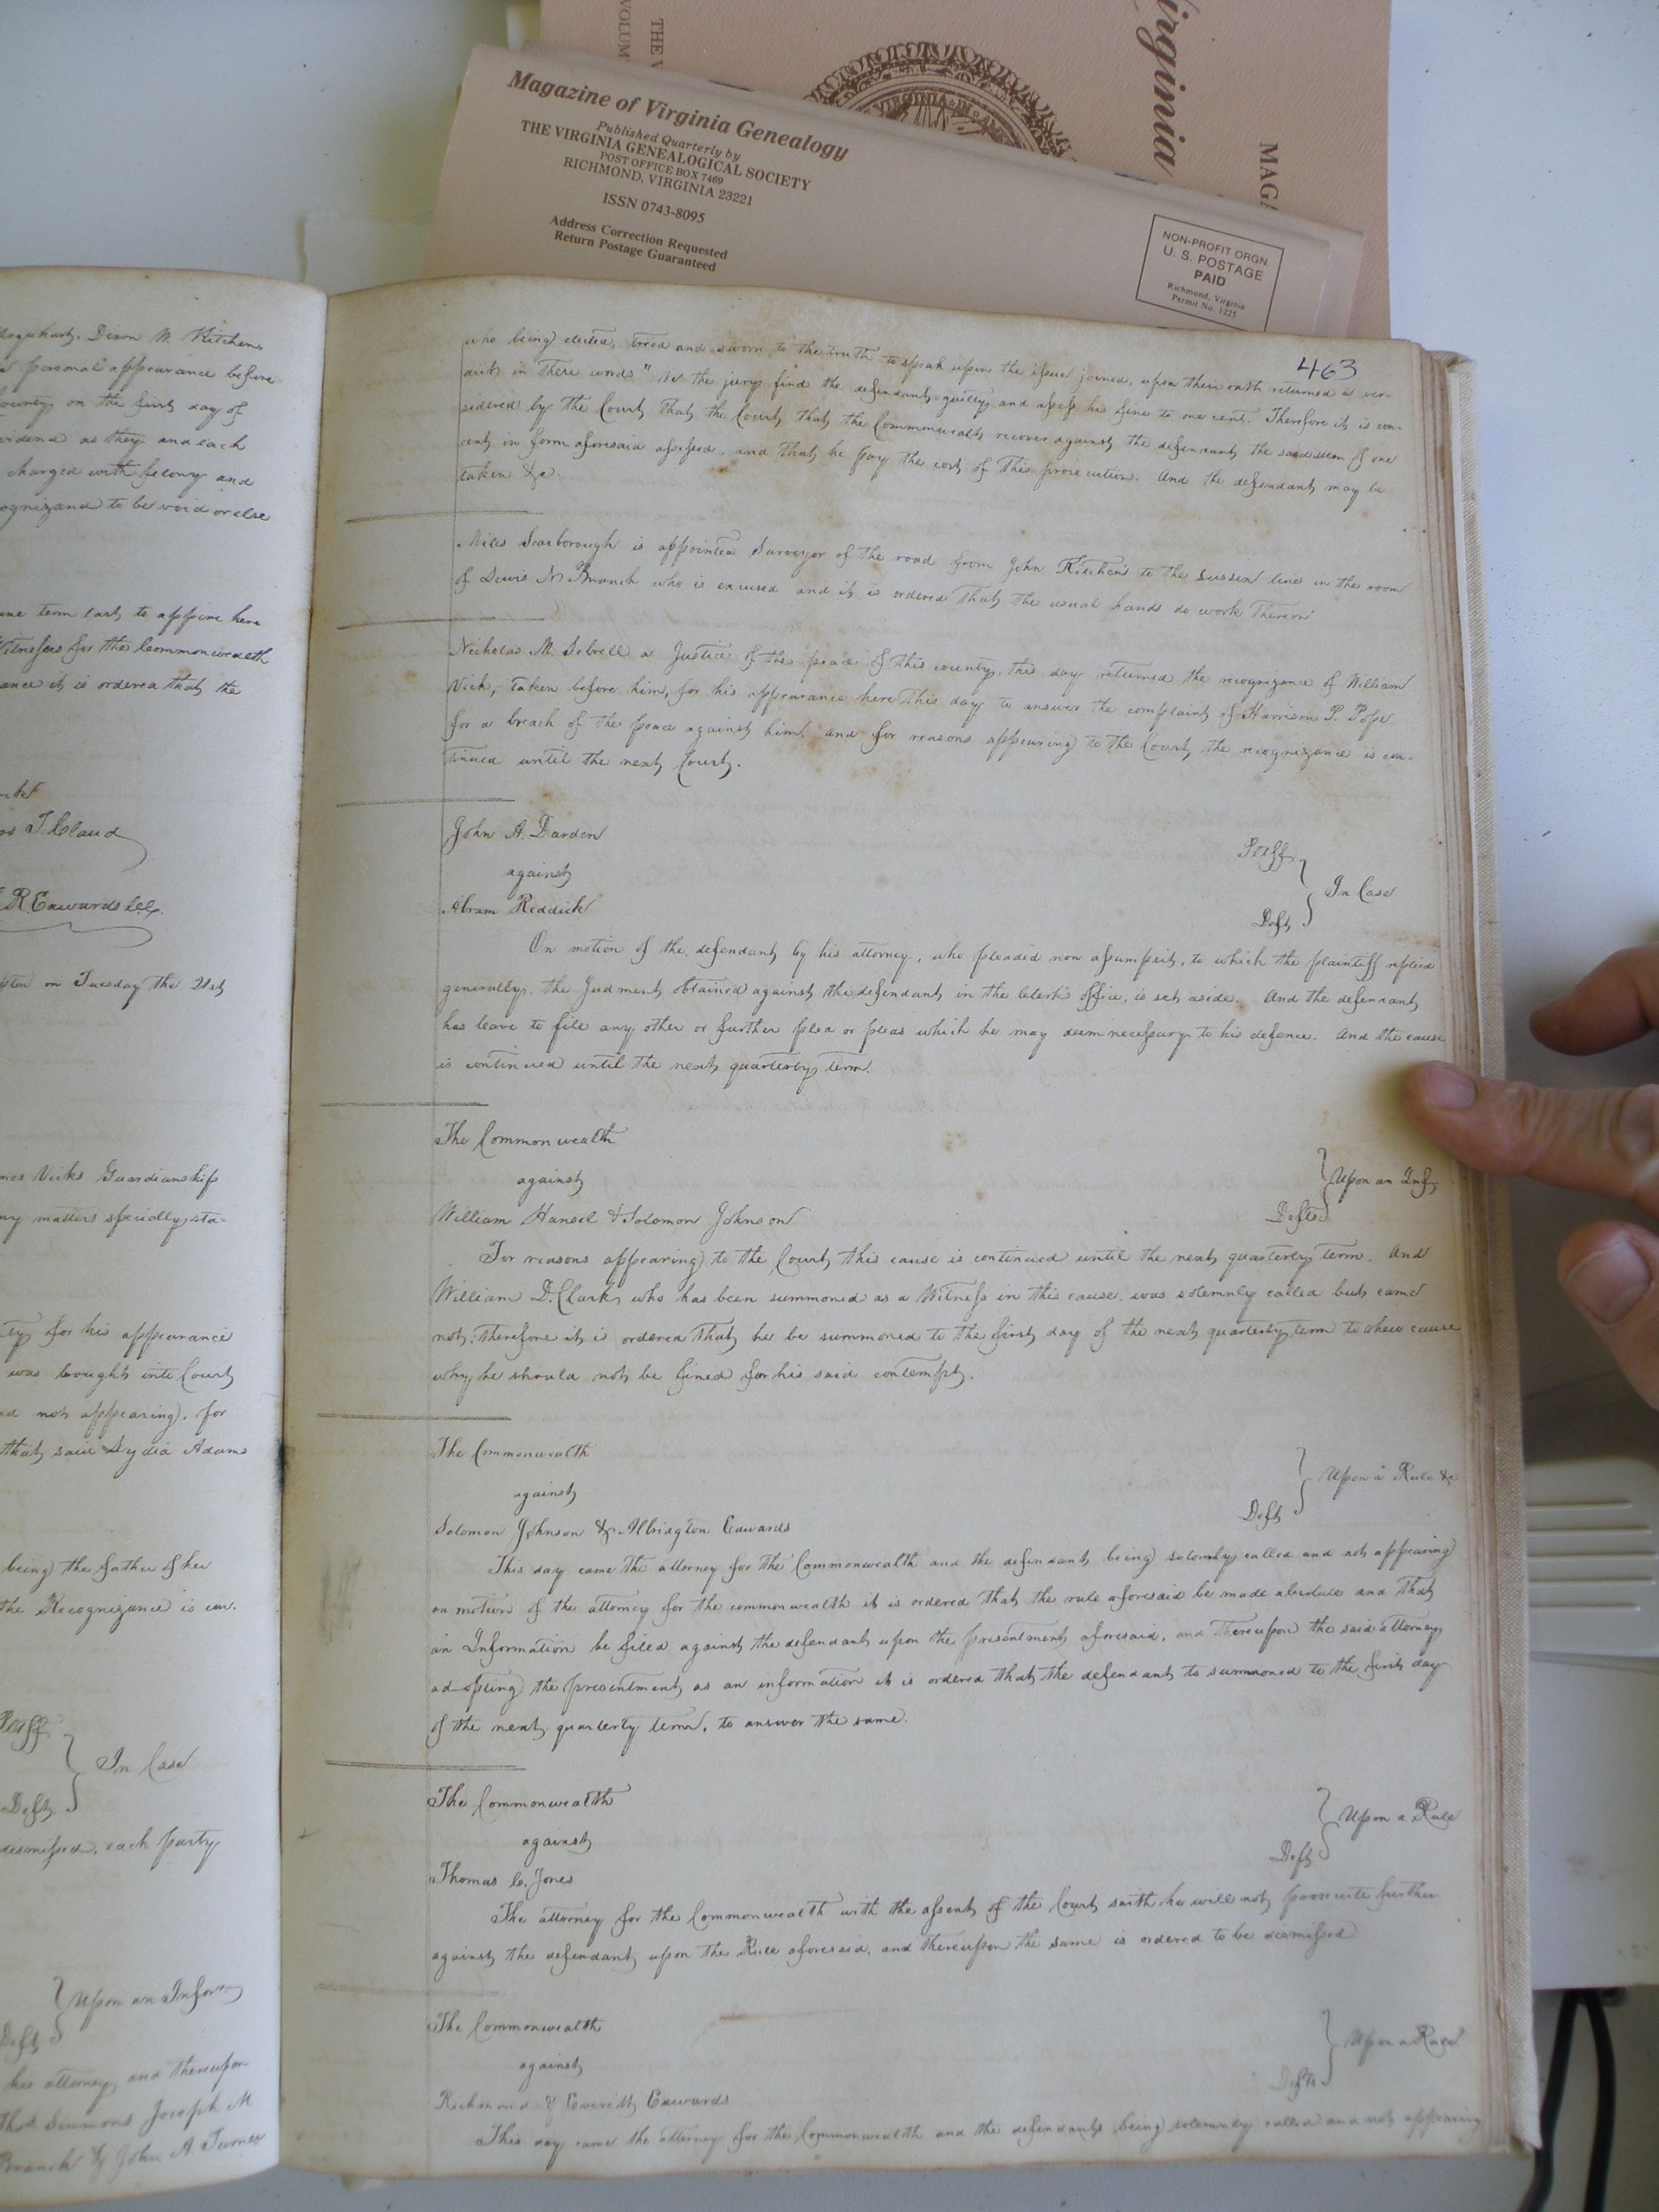 Virginia
MAGA
THE V
VOLUM
VIRGINIA IN
Magazine of Virginia Genealogy
Published Quarterly by
THE VIRGINIA GENEALOGICAL SOCIETY
POST OFFICE BOX 7469
RICHMOND, VIRGINIA 23221
ISSN 0743-8095
Address Correction Requested
Return Postage Guaranteed
NON-PROFIT ORGN.
U. S. POSTAGE
PAID
Richmond, Virginia
Permit No. 1225
Urquhart, Dixon W. Kitchen,
personal appearance before
County on the first day of
as they and each
charged with felony and
ognizance to be void or else
une term last to appear here
Witnesses for the Commonwealth
ance it is ordered that the
T. Claud
R Edwards
on Tuesday the 21st
Vicks Guardianship
ny matters specially sta=
ty for his appearance
was brought into Court
not appearing), for
that said Lydia Adams
being) the father of her
the Recognizance is con-
Plff
In Case
Deft
dismissed, each party
Upon an Inform
Deft
his attorney and thereupon
Thos Simmons Joseph M
Branch & John A Turner
463
who being elected, tried and sworn to the truth to speak upon the issue joined, upon their oath returned a ver-
dict in these words "We the jury find the defendant guilty, and assess his fine to one cent. Therefore it is con-
sidered by the Court that the Court that the Commonwealth recover against the defendant the said sum of one
cent in form aforesaid assessed, and that he pay the cost of this prosecution. And the defendant may be
taken &c.
Miles Scarborough is appointed Surveyor of the road from John Kitchen's to the Sussex line in the room
of Lewis N Branch who is excused and it is ordered that the usual hands do work thereon
Nicholas M Sebrell a Justice of the peace of this county, this day returned the recognizance of William
Vick, taken before him, for his appearance here this day to answer the complaint of Harrison P. Pope
for a breach of the peace against him, and for reasons appearing) to the Court, the recognizance is con-
tinued until the next Court.
John A. Darden
Plff
against
In Case
Abram Riddick
Deft
On motion of the defendant by his attorney, who pleaded non assumpsit, to which the plaintiff replied
generally, the Judment obtained against the defendant in the Clerk's office, is set aside. And the defendant
has leave to file any other or further plea or pleas which he may deem necessary to his defence. And the cause
is continued until the next quarterly term.
The Commonwealth
against
Upon an Inf
William Hansel & Solomon Johnson
Defts
For reasons appearing) to the Court this cause is continued until the next quarterly term. And
William D. Clark, who has been summoned as a Witness in this cause, was solemnly called but came
not; therefore it is ordered that he be summoned to the first day of the next quarterly term to shew cause
why he should not be fined for his said contempt.
The Commonwealth
against
Upon a Rule &c
Solomon Johnson & Albridgton Edwards
Deft
This day came the attorney for the Commonwealth and the defendant being) solemnly called and not appearing)
on motion of the attorney for the commonwealth it is ordered that the rule aforesaid be made absolute and that
an Information be filed against the defendant upon the presentment aforesaid, and thereupon the said attorney
adopting) the presentment as an information it is ordered that the defendant to summoned to the first day
of the next quarterly term, to answer the same.
The Commonwealth
against
Upon a Rule
Thomas C. Jones
Deft
The attorney for the Commonwealth with the assent of the Court saith he will not prosecute further
against the defendant upon the Rule aforesaid, and thereupon the same is ordered to be dismissed
The Commonwealth
against
Upon a Rule
Richmond & Everett Edwards
Defts
This day came the attorney for the Commonwealth and the defendants being) solemnly called and not appearing